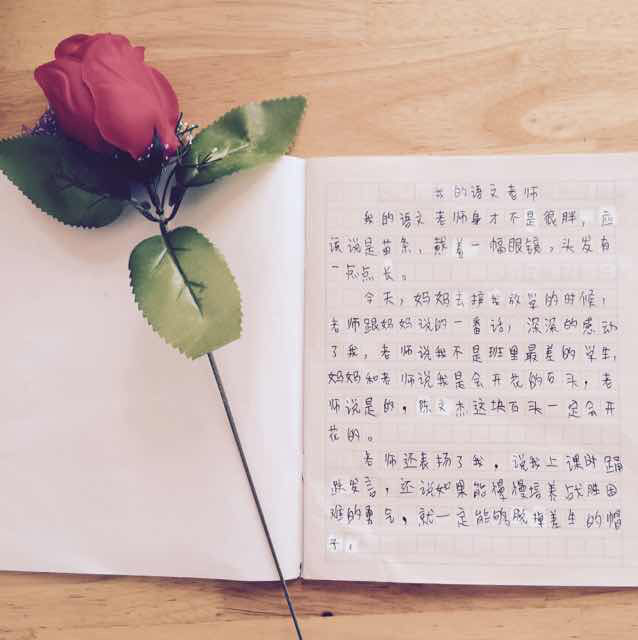 我的语文老师
我的语文老师身才不是很胖，应
该说是苗条，戴着一幅眼镜，头发有
一点点长。
今天，妈妈去接我放学的时候，
老师跟妈妈说的一番话，深深的感动
了我，老师说我不是班里最差的学生，
妈妈和老师说我是会开花的石头，老
师说是的，陈文杰这块石头一定会开
花的。
老师还表扬了我，说我上课时踊
跃发言，还说如果能慢慢培养战胜困
难的勇气，就一定能够脱掉差生的帽
子，